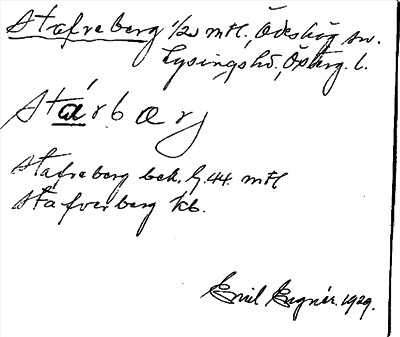 Stafreberg 1/20 mtl., Ödeshög sn.
Lysings hd., Österg. l.
stárbarj
Stafreberg bek. G. 44. mtl
Stafverberg kb.
Emil Engnér. 1929.